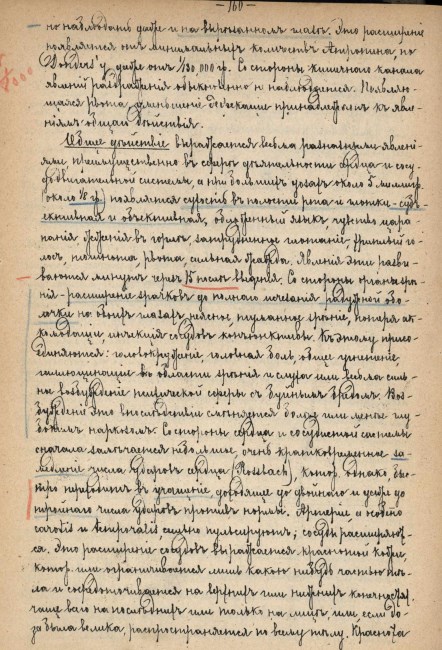 - 160 -
но наблюдать даже и на вырезанномъ глазѣ. Это расширеніе
появляется отъ минимальныхъ количествъ Атропина, по
Donders'у даже отъ 1/130,000 гр. Со стороны кишечнаго канала
явленій раздраженія обыкновенно не наблюдается. Появляю-
щаяся рвота, уменьшеніе принадлежитъ къ явле-
ніямъ общаго дѣйствія.
Общее дѣйствіе выражается весьма различными явлені-
ями преимущественно въ сферѣ дѣятельности сердца и сосу-
додвигательной системы, а при большихъ дозахъ около 5 миллигр.
(около 1/8 гр.) появляется сухость въ полости рта и глотки - субъ-
ективная и объективная, обложенный языкъ чувство цара-
панія и жженія въ горлѣ, затрудненное глотаніе, хриплый го-
лосъ, тошнота рвота сильная жажда. Явленія эти разви-
ваются минутъ черезъ 15 послѣ введенія. Со стороны органа зрѣ-
нія - расширеніе зрачковъ до полнаго исчезанія радужной обо-
лочки на обоихъ глазахъ, неясное, туманное зрѣніе, потеря ак-
комодаціи, инъекція сосудовъ конъюнктивы. Къ этому присо-
единяются: головокруженіе, головная боль, общее угнетеніе,
галлюцинаціи въ области зрѣнія и слуха или весьма силь-
ное возбужденіе психической сферы съ буйнымъ бредомъ. Воз-
бужденіе это впослѣдствіи смѣняется болѣе или менѣе глу-
бокимъ наркозомъ. Со стороны сердца и сосудистой системы
сначала замѣчается небольшое, очень кратковременное за-
медленіе числа ударовъ сердца (Rossbach), котор. однако бы-
стро переходитъ въ учащеніе, доходящее до двойного и даже до
тройнаго числа ударовъ противъ нормы. Артеріи, а особенно
carotis и temporalis, сильно пульсируютъ, сосуды расширяют-
ся. Это расширеніе сосудовъ выражается краснотою кожи,
котор. или ограничивается лишь какою нибудь частью тѣ-
ла и сосредоточивается на верхнихъ или нижнихъ конечностяхъ,
чаще на послѣднихъ или только на лицѣ, или если до-
за была велика, распространяется по всему тѣлу. Краснота